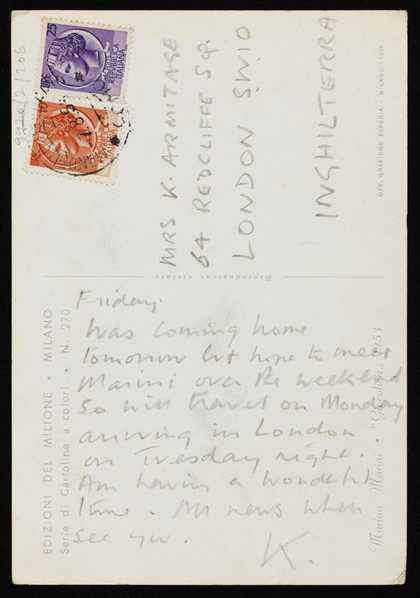 9920/2/106
25
MRS K. ARMITAGE
64 REDCLIFFE Sq.
LONDON SW10
INGHILTERRA
OFF. GRAFICHE ESPERIA - MILANO
Riproduzione vietata
EDIZIONI DEL MILIONE • MILANO
Serie di Cartoline a colori • N. 270
Marino Marini 1953
Friday.
Was coming home
tomorrow but hope to meet
Marini over the weekend
So will travel on Monday
arriving in London
on Tuesday night.
Am having a wonderful
time. All news when
see you.
K.